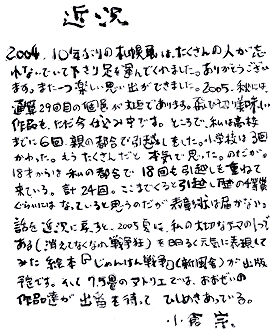 近況
2004. 10年ぶりの札幌展は、たくさんの人が忘
れないでいて下さり足を運んでくれました。ありがとうござい
ます。また一つ楽しい思い出ができました。2005. 秋には、
通算29回目の個展が丸善であります。飛びっ切り美味しい
作品を、ただ今仕込み中です。ところで、私は高校
までに6回、親の都合で引越しをした。小学校は3回
かわった。もうたくさんだと本気で思った。のだが、
18才からは私の都合で18回も引越しを重ねて
来ている。計24回。ここまでくると引越し歴の
ぐらいにはなっていると思うのだが表彰状は届かない。
話を近況に戻すと、2005夏に、私の大切なテーマの1つで
ある（消えてなくなれ戦争社）を明るく元気に表現して
みた絵本『じめんはん戦争』（新風舎）が出版
です。そして7.5畳のアトリエでは、おおぜいの
作品達が出番を待ってひしめきあっている。
小